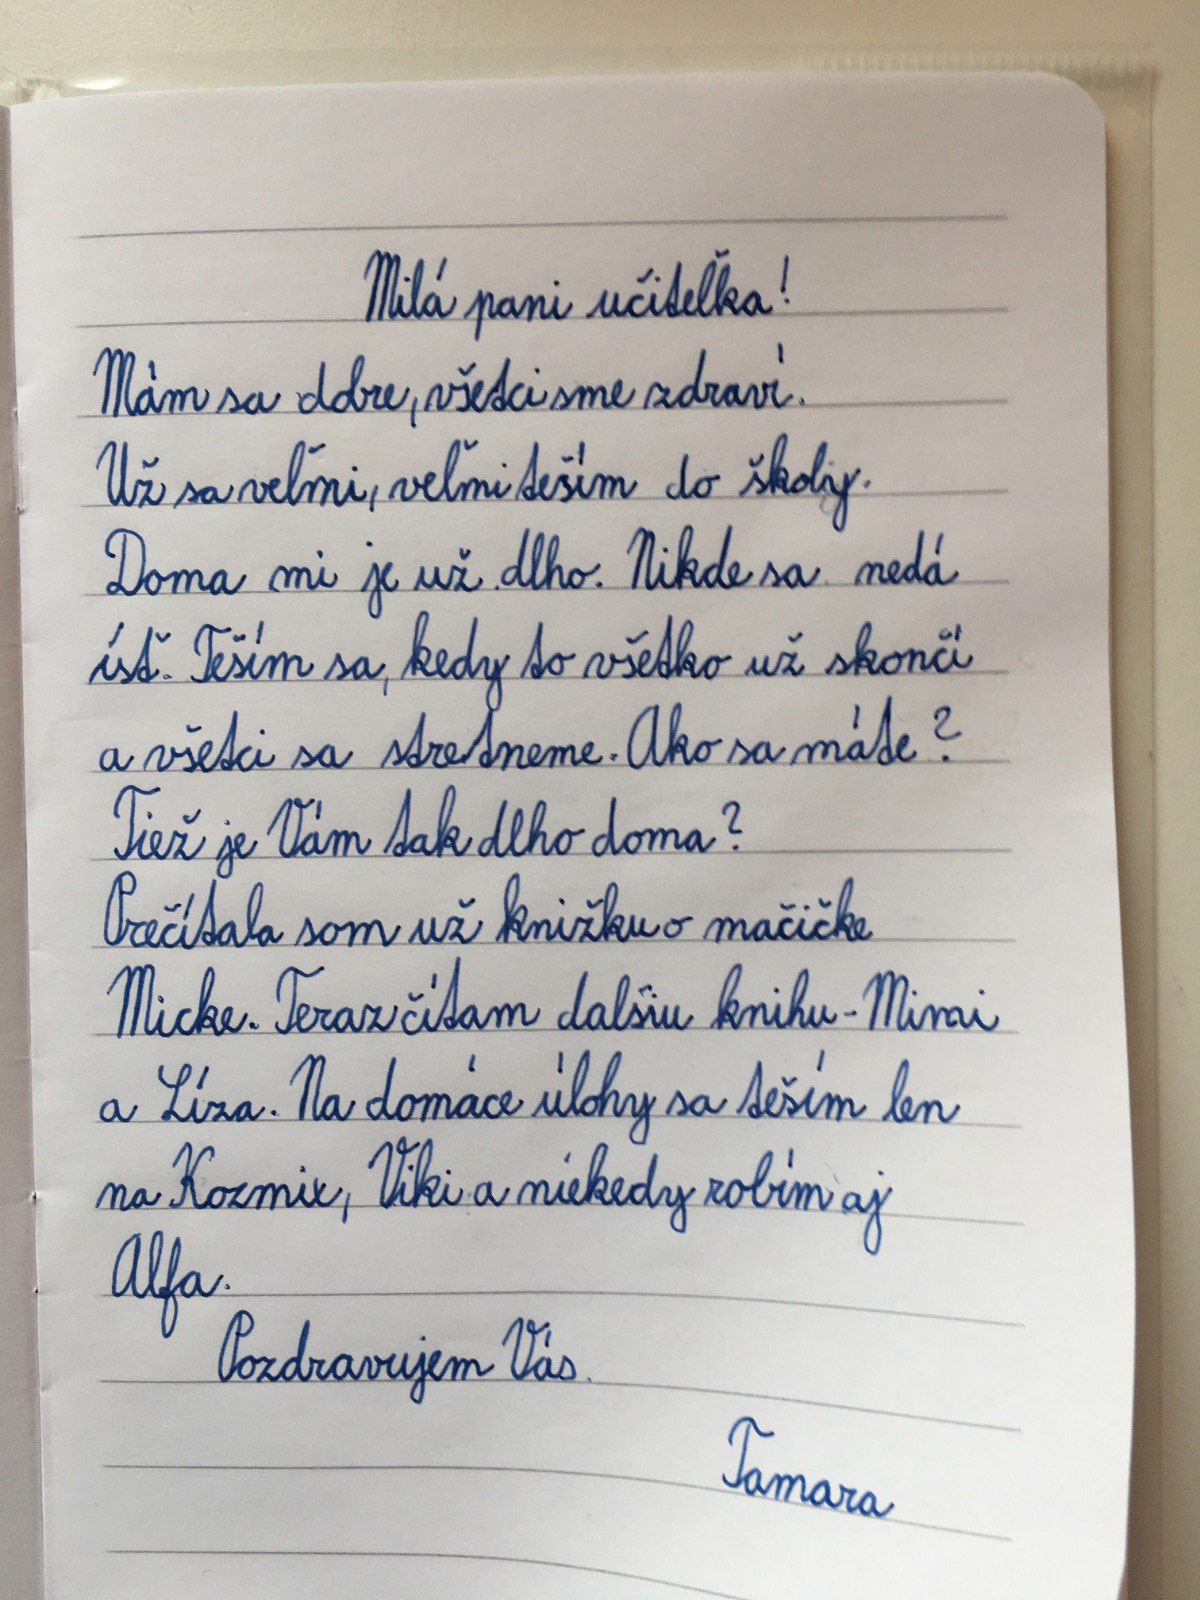 Milá pani učiteľka!
Mám sa dobre, všetci sme zdraví.
Už sa veľmi, veľmi teším do školy.
Doma mi je už dlho. Nikde sa nedá
ísť. Teším sa, kedy to všetko už skončí
a všetci sa stretneme. Ako sa máte?
Tiež je Vám tak dlho doma?
Prečítala som už knižku o mačičke
Micke. Teraz čítam dalšiu knihu - Mimi
a Líza. Na domáce úlohy sa teším len
na Kozmix, Viki a niekedy robím aj
Alfa.
Pozdravujem Vás.
Tamara